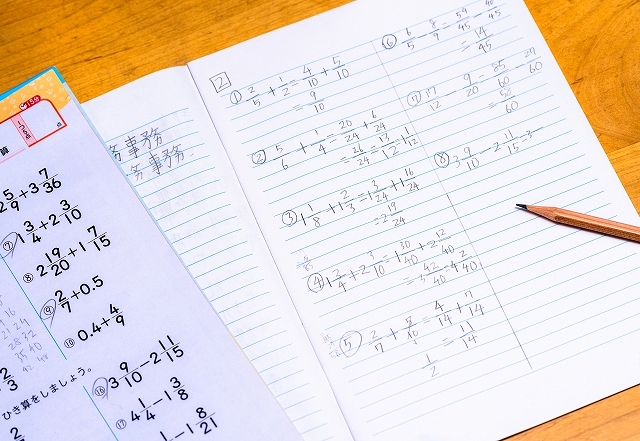 算
2 5/9 + 3 7/36
⑦ 1 3/4 + 2 3/10
⑧ 2 19/20 + 1 7/15
⑨ 2/7 + 0.5
⑩ 0.4 + 4/9
2/3
ひき算をしましょう。
⑯ 3 9/10 - 2 11/15
⑰ 4 1/4 - 1 3/8
1/ - 1 8/21
務事務
務事務
2
① 2/5 + 1/2 = 4/10 + 5/10
= 9/10
② 5/6 + 1/4 = 20/24 + 6/24
= 26/24 = 13/12 = 1 1/12
③ 1 1/8 + 1 2/3 = 1 3/24 + 1 16/24
= 2 19/24
④ 1 3/4 + 2 3/10 = 1 30/40 + 2 12/40
= 3 42/40 = 4 2/40
⑤ 2/7 + 5/10 = 4/14 + 7/14
= 11/14
1/2
⑥ 6/5 - 8/9 = 54/45 - 40/45
= 14/45
⑦ 17/12 - 9/20 = 85/60 - 27/60
= 58/60
⑧ 3 9/10 - 2 11/15 = 3